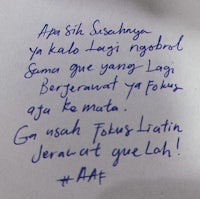 Apa sih susahnya
ya kalo lagi ngobrol
sama gue yang lagi
Berjerawat ya Fokus
aja ke mata.
Ga usah Fokus Liatin
Jerawat gue Lah!
#AAF